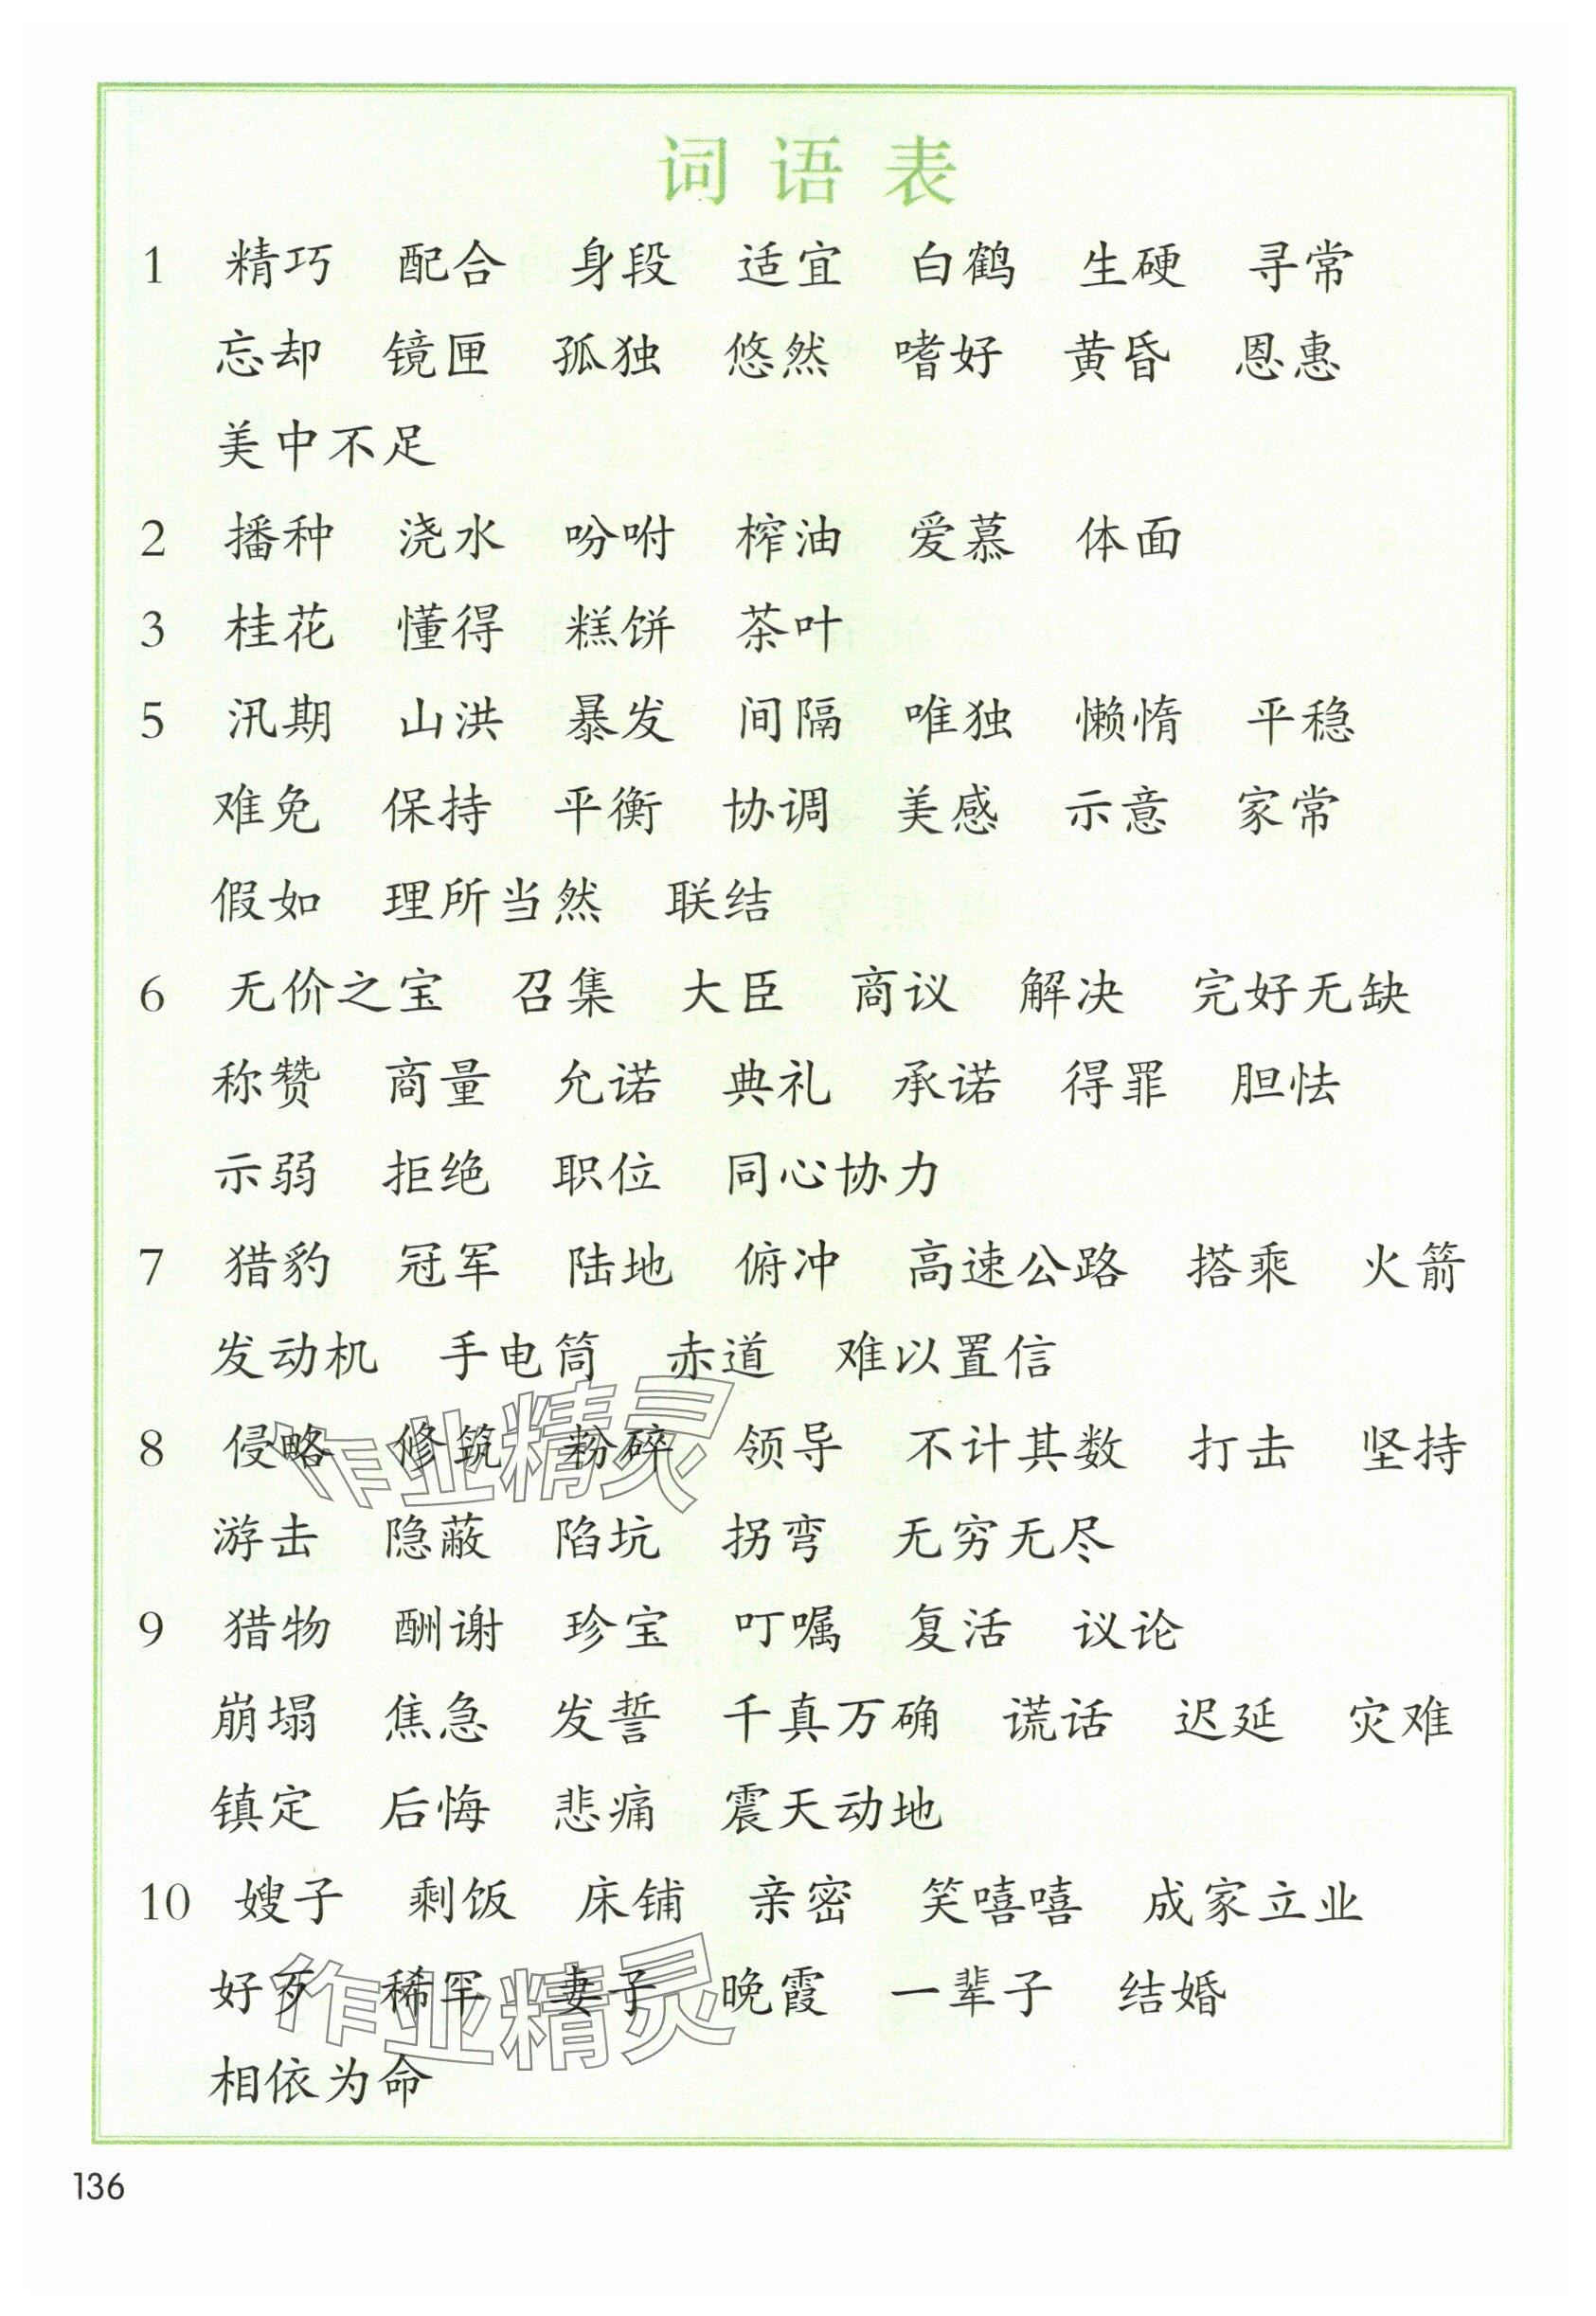 词语表
1 精巧 配合 身段 适宜 白鹤 生硬 寻常
忘却 镜匣 孤独 悠然 嗜好 黄昏 恩惠
美中不足
2 播种 浇水 吩咐 榨油 爱慕 体面
3 桂花 懂得 糕饼 茶叶
5 汛期 山洪 暴发 间隔 唯独 懒惰 平稳
难免 保持 平衡 协调 美感 示意 家常
假如 理所当然 联结
6 无价之宝 召集 大臣 商议 解决 完好无缺
称赞 商量 允诺 典礼 承诺 得罪 胆怯
示弱 拒绝 职位 同心协力
7 猎豹 冠军 陆地 俯冲 高速公路 搭乘 火箭
发动机 手电筒 赤道 难以置信
8 侵略 修筑 粉碎 领导 不计其数 打击 坚持
作业精灵
游击 隐蔽 陷坑 拐弯 无穷无尽
9 猎物 酬谢 珍宝 叮嘱 复活 议论
崩塌 焦急 发誓 千真万确 谎话 迟延 灾难
镇定 后悔 悲痛 震天动地
10 嫂子 剩饭 床铺 亲密 笑嘻嘻 成家立业
好歹 稀罕 妻子 晚霞 一辈子 结婚
作业精灵
相依为命
136